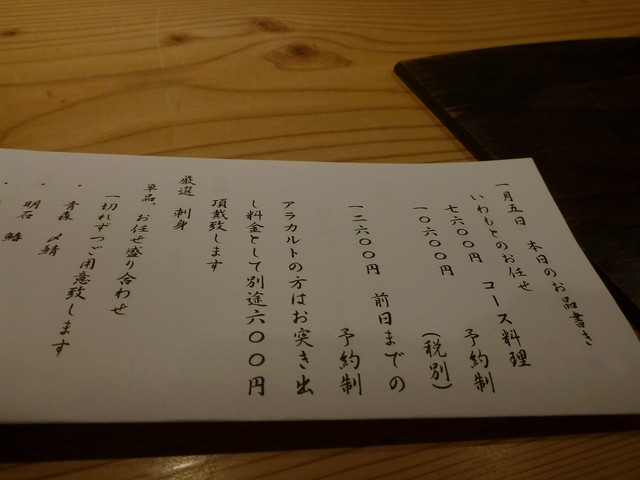 一月五日　本日のお品書き
いわもとのお任せ　コース料理
七六００円　予約制
一０六００円　（税別）
一二六００円　前日までの
予約制
アラカルトの方はお突き出
し料金として別途六００円
頂戴致します
厳選　刺身
単品、お任せ盛り合わせ
一切れずつご用意致します
・青森　〆鯖
・明石　鰆